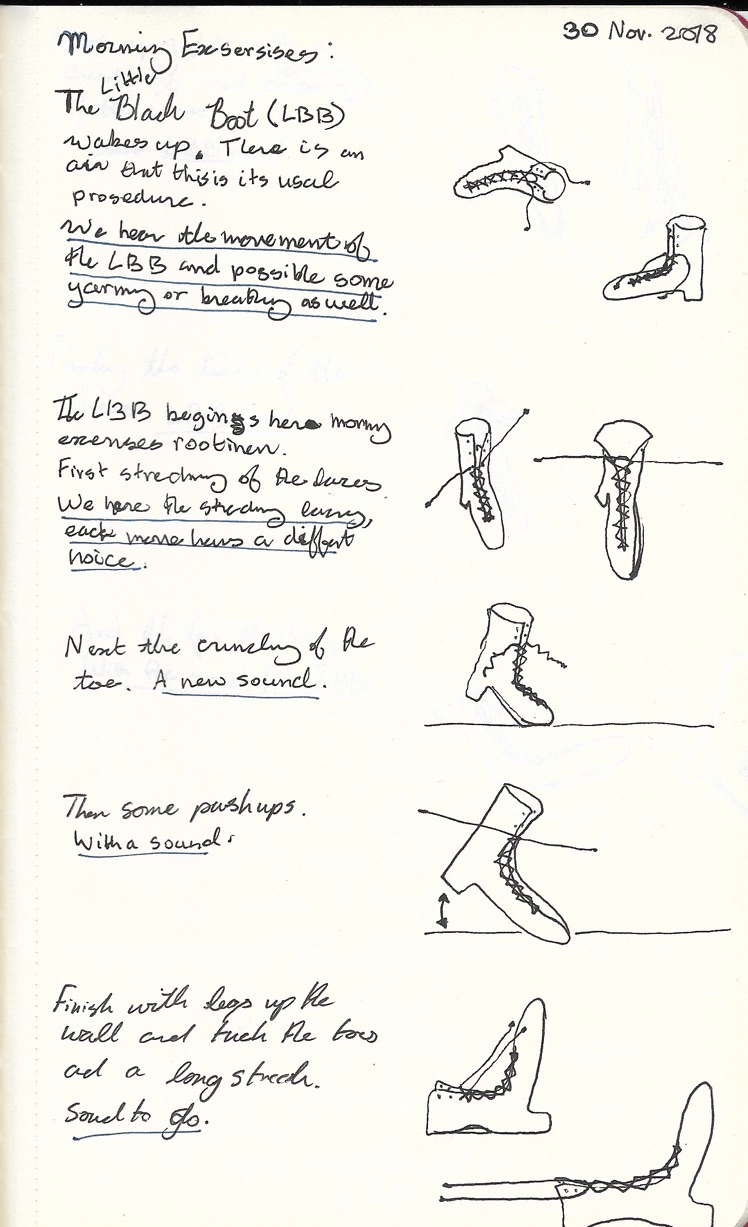 30 Nov. 2018
Morning Exsersises:
Little
The Black Boot (LBB)
wakes up. There is an
air that this is its usual
prosedure.
We hear the movement of
the LBB and possible some
yarning or breathing as well.
The LBB begins here morning
exenses rootinen.
First streching of the laces
We here the streching
each move haws a diffent
noice.
Next the crunching of the
toe. A new sound.
Then some pushups.
With a sound.
Finish with legs up the
wall and tuch the toes
ad a long strech.
Sound to go.